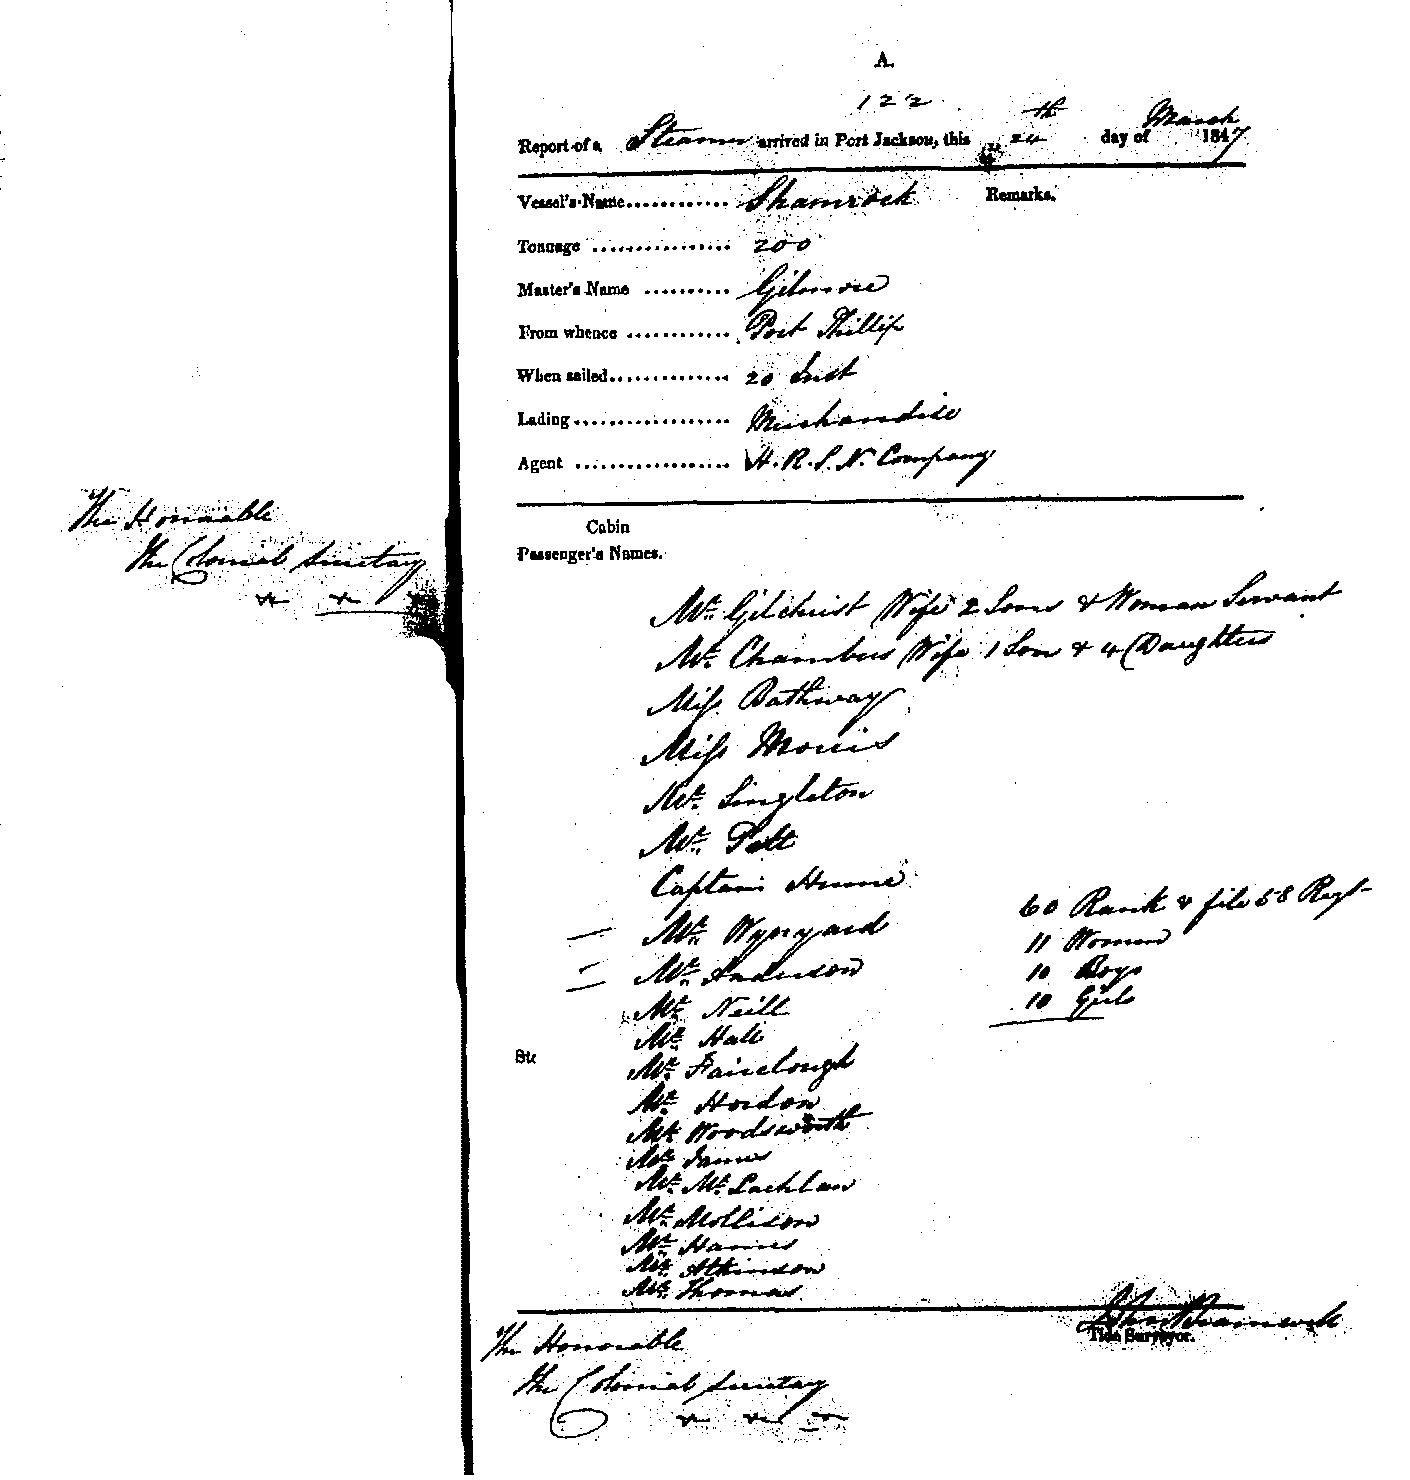 The Honorable
The Colonial Secretary
A.
122
Report of a Steamer arrived in Port Jackson, this 24th day of March 1847
Vessel's Name............ Shamrock Remarks.
Tonnage ................ 200
Master's Name .......... Gilmore
From whence ............ Port Phillip
When sailed.............. 20 Inst
Lading................... Merchandise
Agent ................... H. R. S. N. Company
Cabin
Passenger's Names.
Mr. Gilchrist Wife 2 Sons & Woman Servant
Mr. Chambers Wife 1 Son & 4 Daughters
Miss Bathway
Miss Morris
Mr. Singleton
Mr. Patt
Captain Hume
Mr. Wynyard
Mr. Anderson
Mr. Neill
Mr. Hall
Mr. Fairclough
Mr. Hordon
Mr. Woodsworth
Mr. James
Mr. McLachlan
Mr. Mollison
Mr. Harris
Mr. Atkinson
Mr. Thomas
60 Rank & file 58 Regt
11 Women
10 Boys
10 Girls
St
John
Tide Surveyor.
The Honorable
The Colonial Secretary